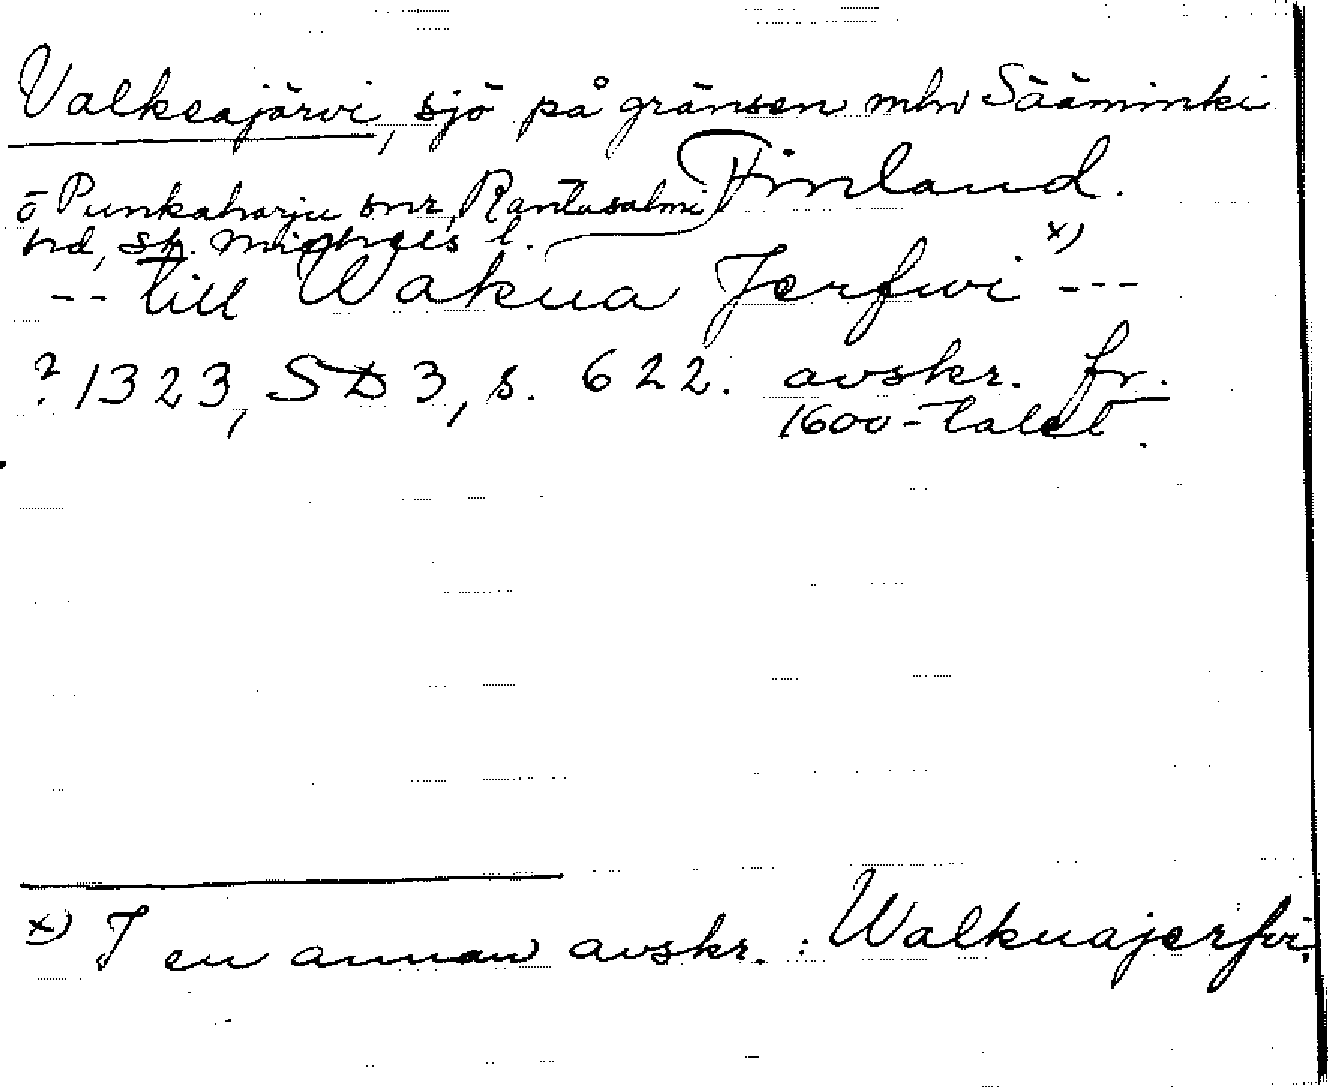 Valkeajärvi, sjö på gränsen mln Sääminki
o Punkaharju snr, Rantasalmi Finland.
hd, S:t Michels l.
-- till Wakua Jerfwi x) ---
? 1323, SD 3, s. 622. avskr. fr.
1600-talet.
x) I en annan avskr.: Walkuajerfvi.